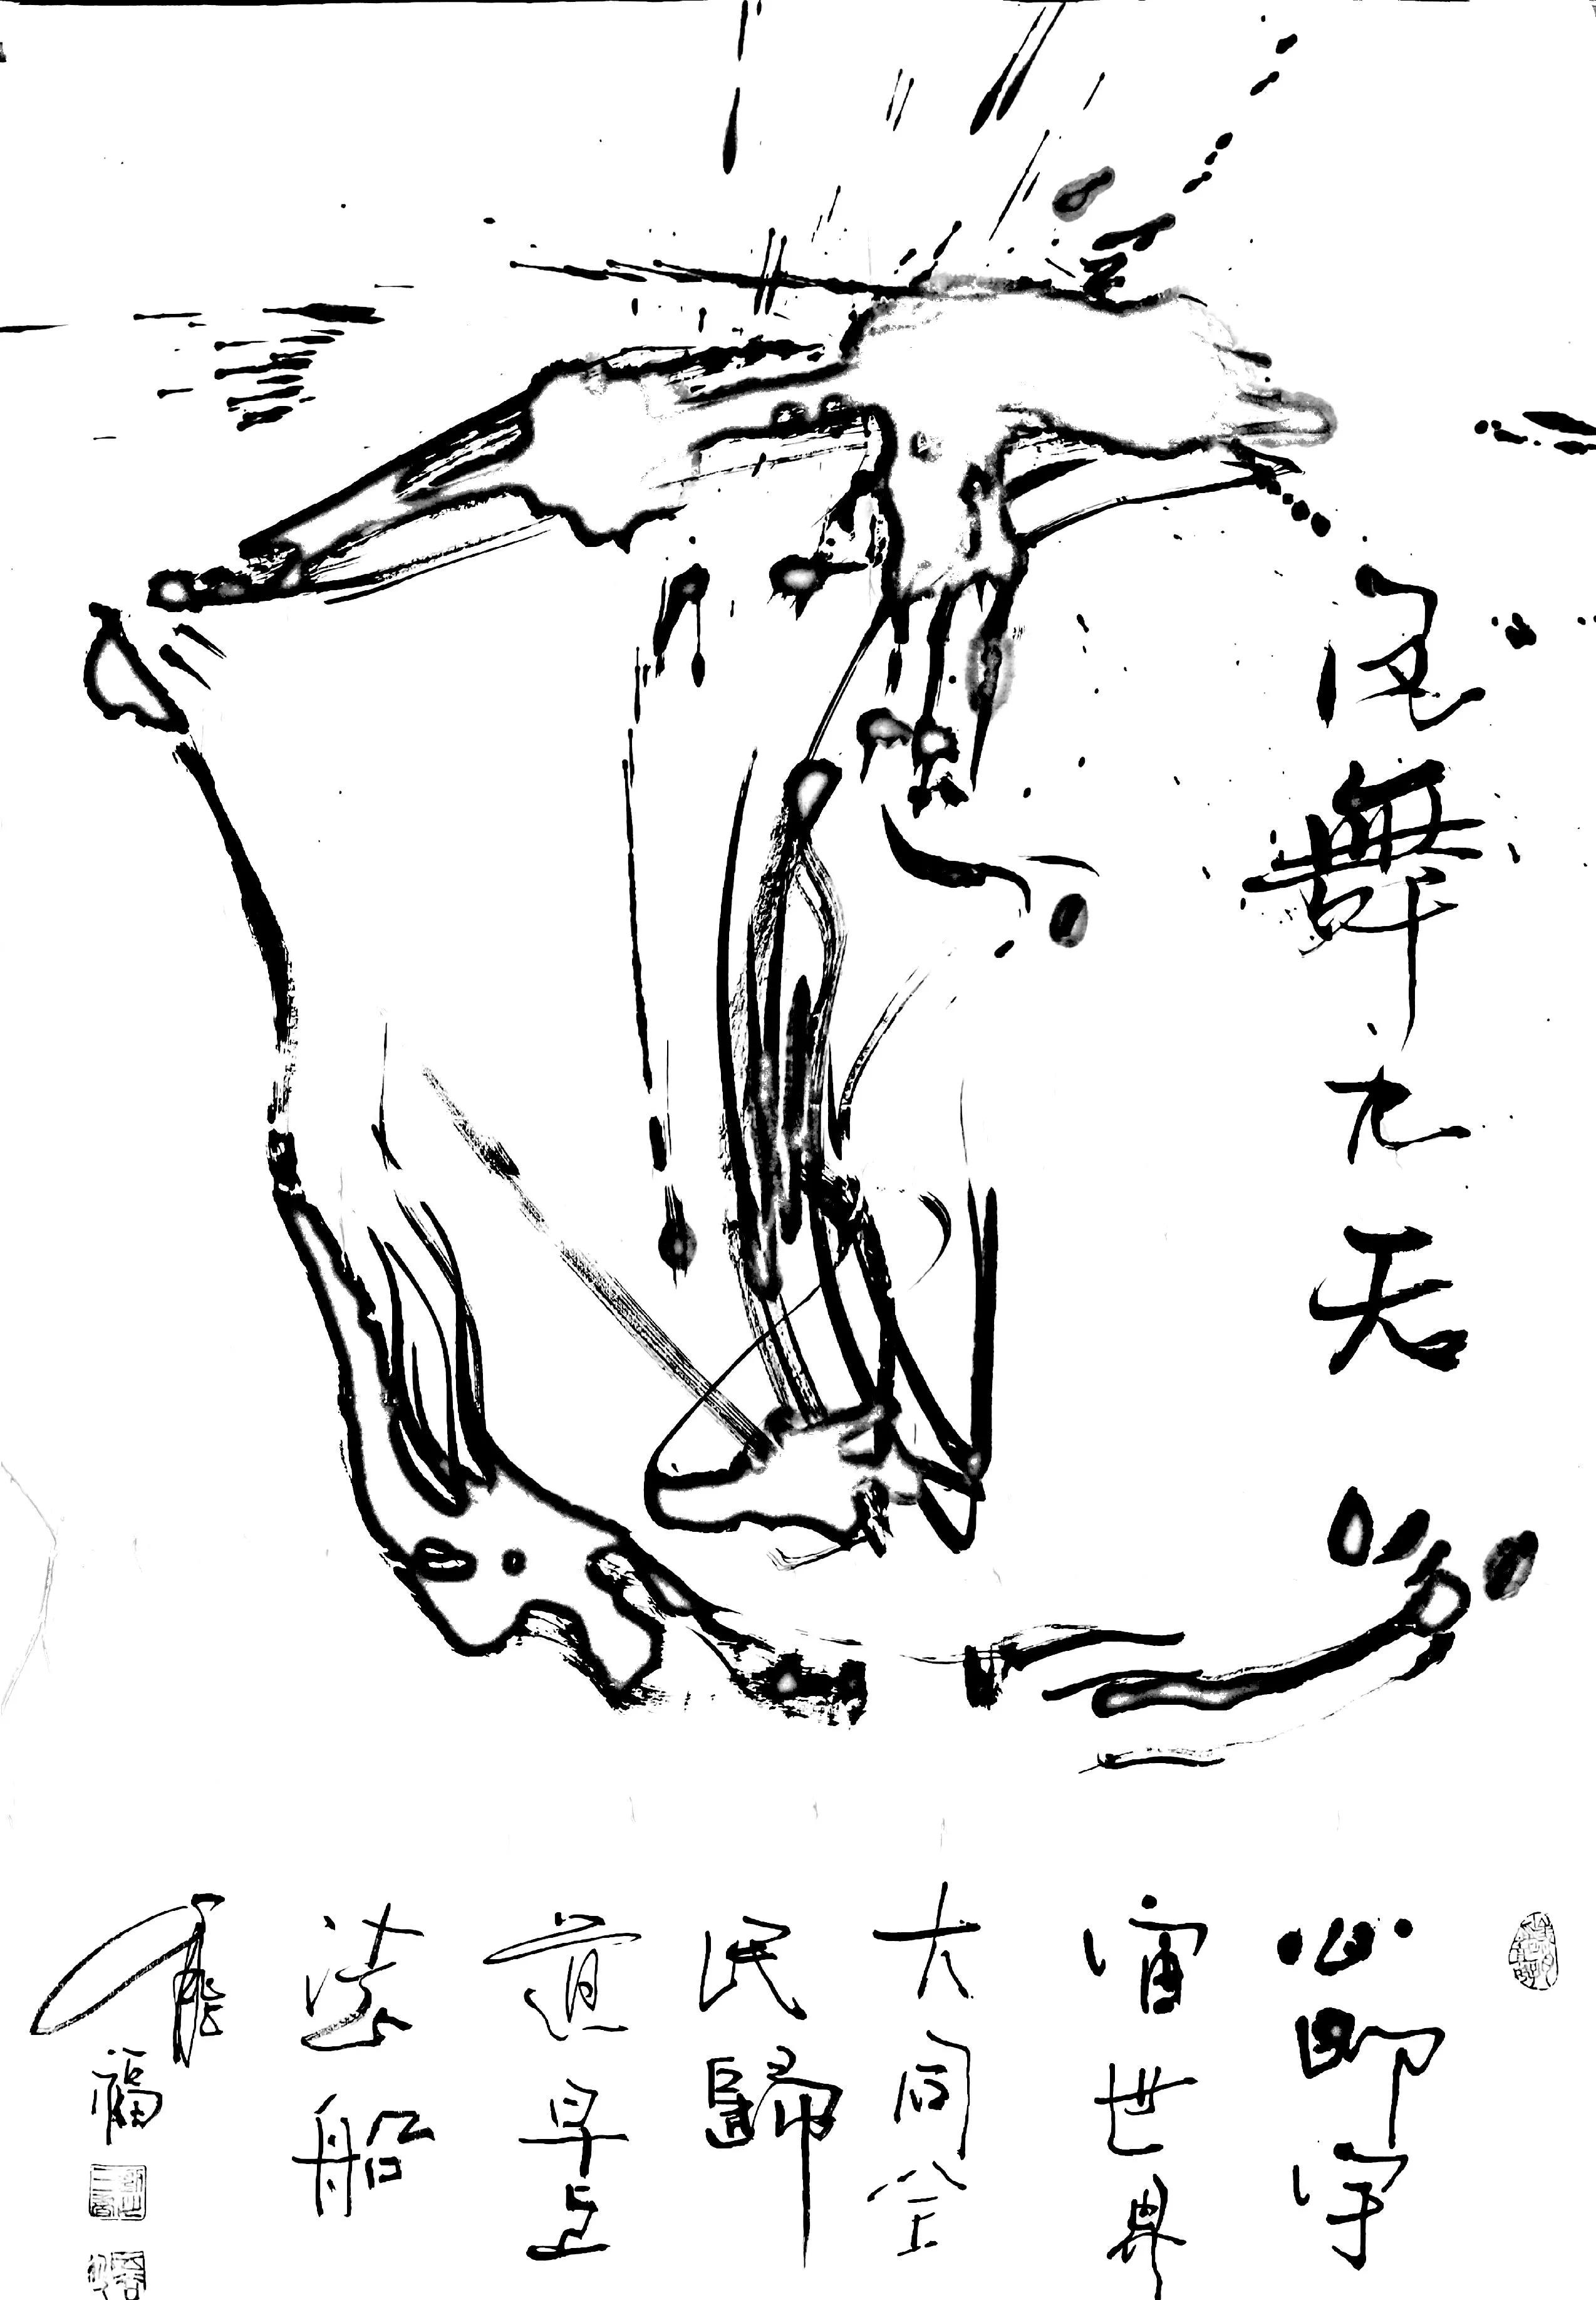 舞九天
心即宇
宙世界
大同全
民歸
道早上
法船
福